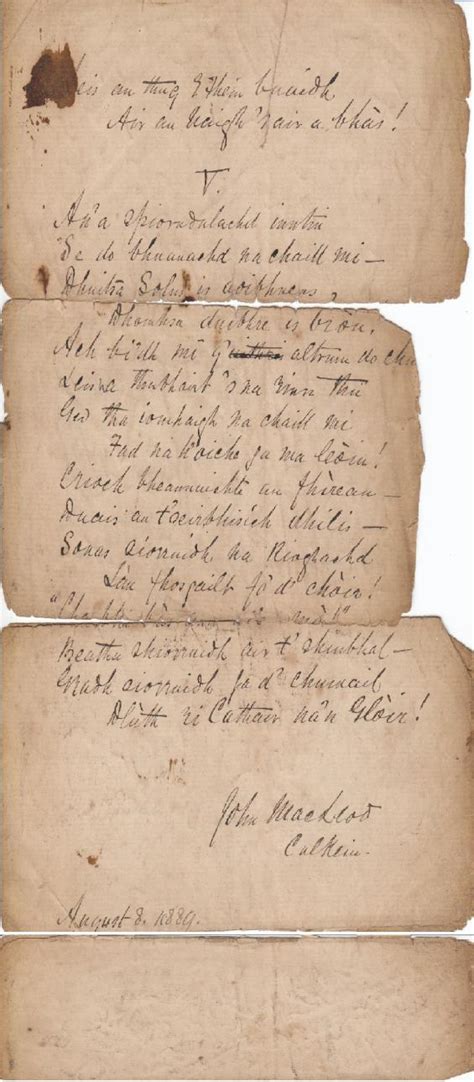 an thug E fhein buaidh,
Air an Uaigh 's air a bhàs!
V.
An'a spioradalachd inntin
'Se do bhuannachd na chaill mi –
Dhuitsa Solus is aoibhneas,
Dhomhsa duibhre is bròn.
Ach bi'dh mi g' altrum do
Leis na thubhairt 's na rinn thu
Ged tha iomhaigh na chaill mi
Fad na h'oiche ga ma leòin!
Crioch bheannuichte an fhìrean –
Duais an t-seirbhisich dhilis –
Sonas siorruidh na Rioghachd
Làn fhosgailt fo'd' chòir!
Beatha shiorruidh air t' shiubhal –
Gradh siorruidh ga'd' chumail
Dlùth ri Cathair na'n Glòir!
John MacLeod
Culkein.
August 8. 1889.